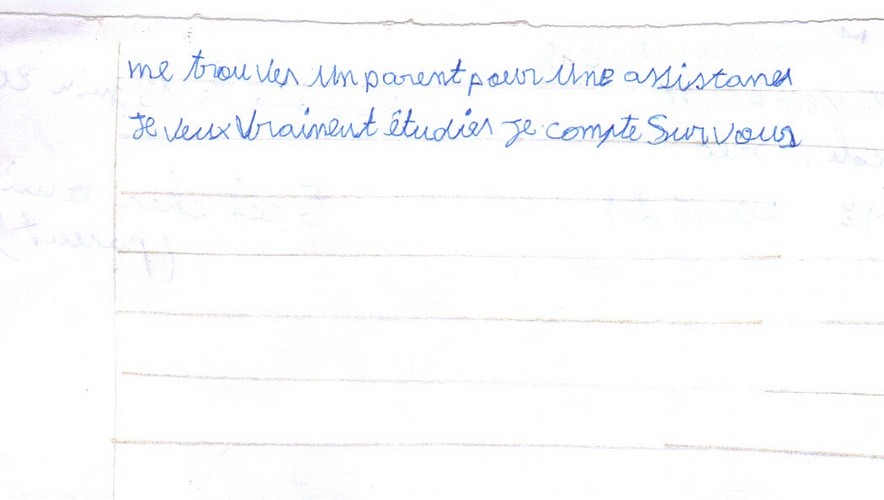 me trouver un parent pour une assistance
Je veux vraiment étudier je compte sur vous